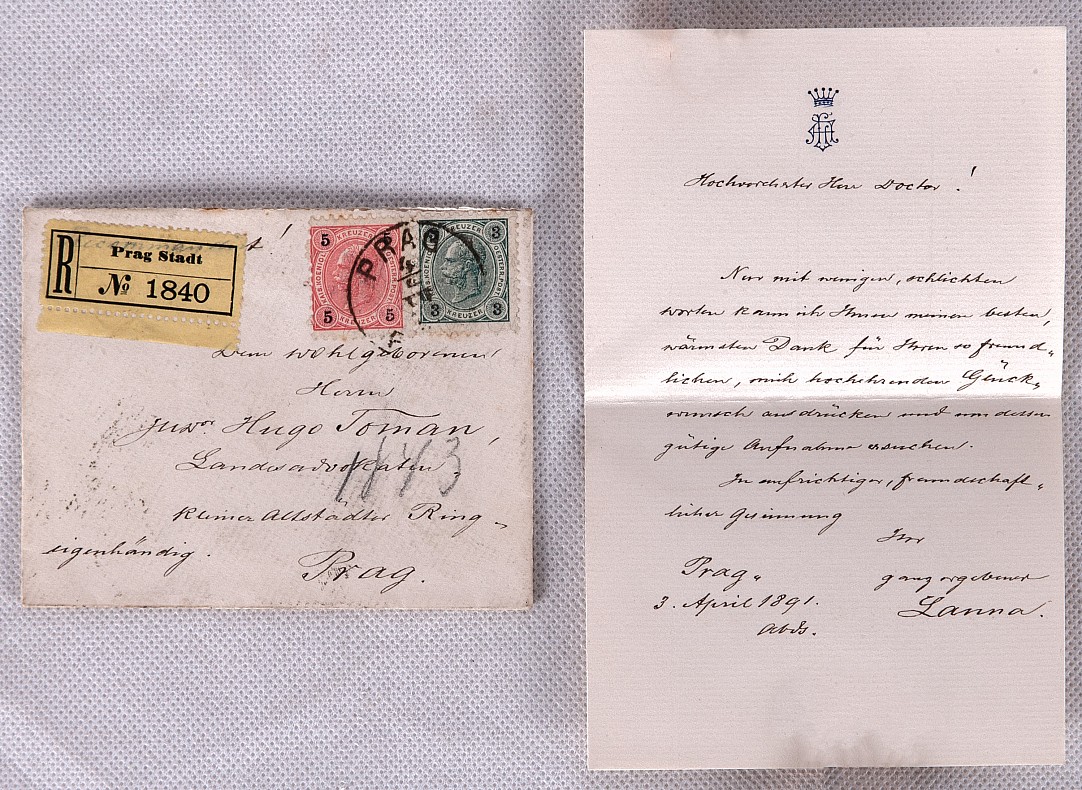 Recommandirt!
R
Prag Stadt
No 1840
5 KREUZER 5
KAIS. KOENIGL. OESTERR. POST
5 KREUZER 5
3 KREUZER 3
KAIS. KOENIGL. OESTERR. POST
3 KREUZER 3
PRAG
Dem wohlgeborenen
Herrn
Hugo Toman,
Landesadvokaten,
kleiner Altstädter Ring
eigenhändig.
Prag.
1843
Hochverehrter Herr Doctor!
Nur mit wenigen, schlichten
worten kann ich Ihnen meinen besten,
wärmsten Dank für Ihren so freund„
lichen, mich hochehrenden Glück„
wunsch ausdrücken und um dessen
gütige Aufnahme ersuchen.
In aufrichtiger, freundschaft„
licher Gesinnung
Ihr
Prag„
ganz ergebener
3. April 1891.
Lanna.
Abds.